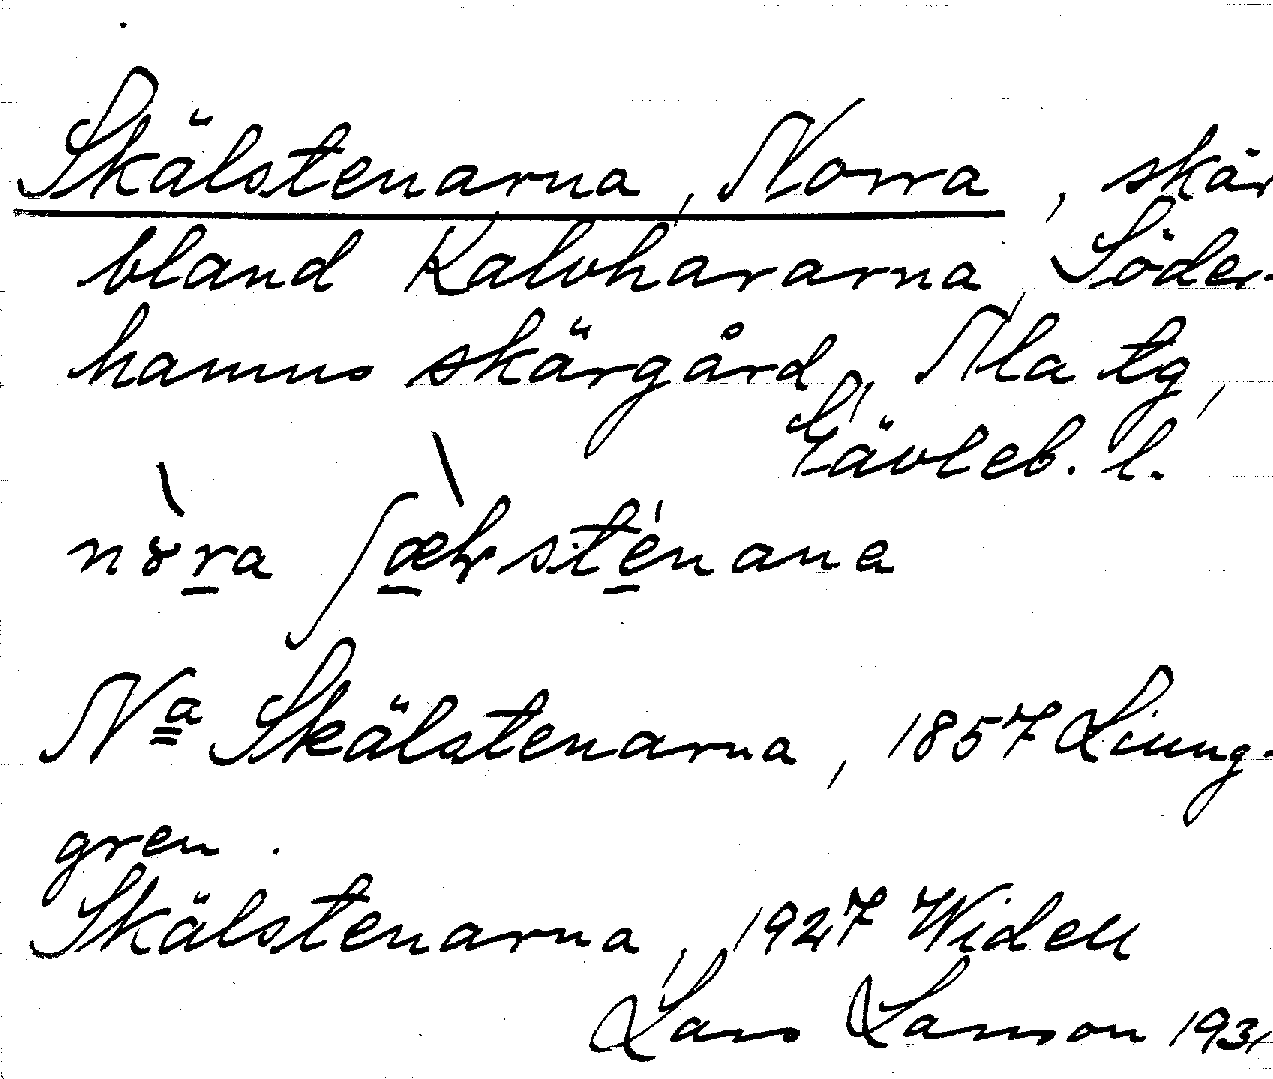 Skälstenarna, Norra, skär
bland Kalvhararna, Söder-
hamns skärgård, Nla tg,
Gävleb. l.
Nª Skälstenarna, 1857 Ljung-
gren.
Skälstenarna, 1927 Widell
Lars Larsson 193